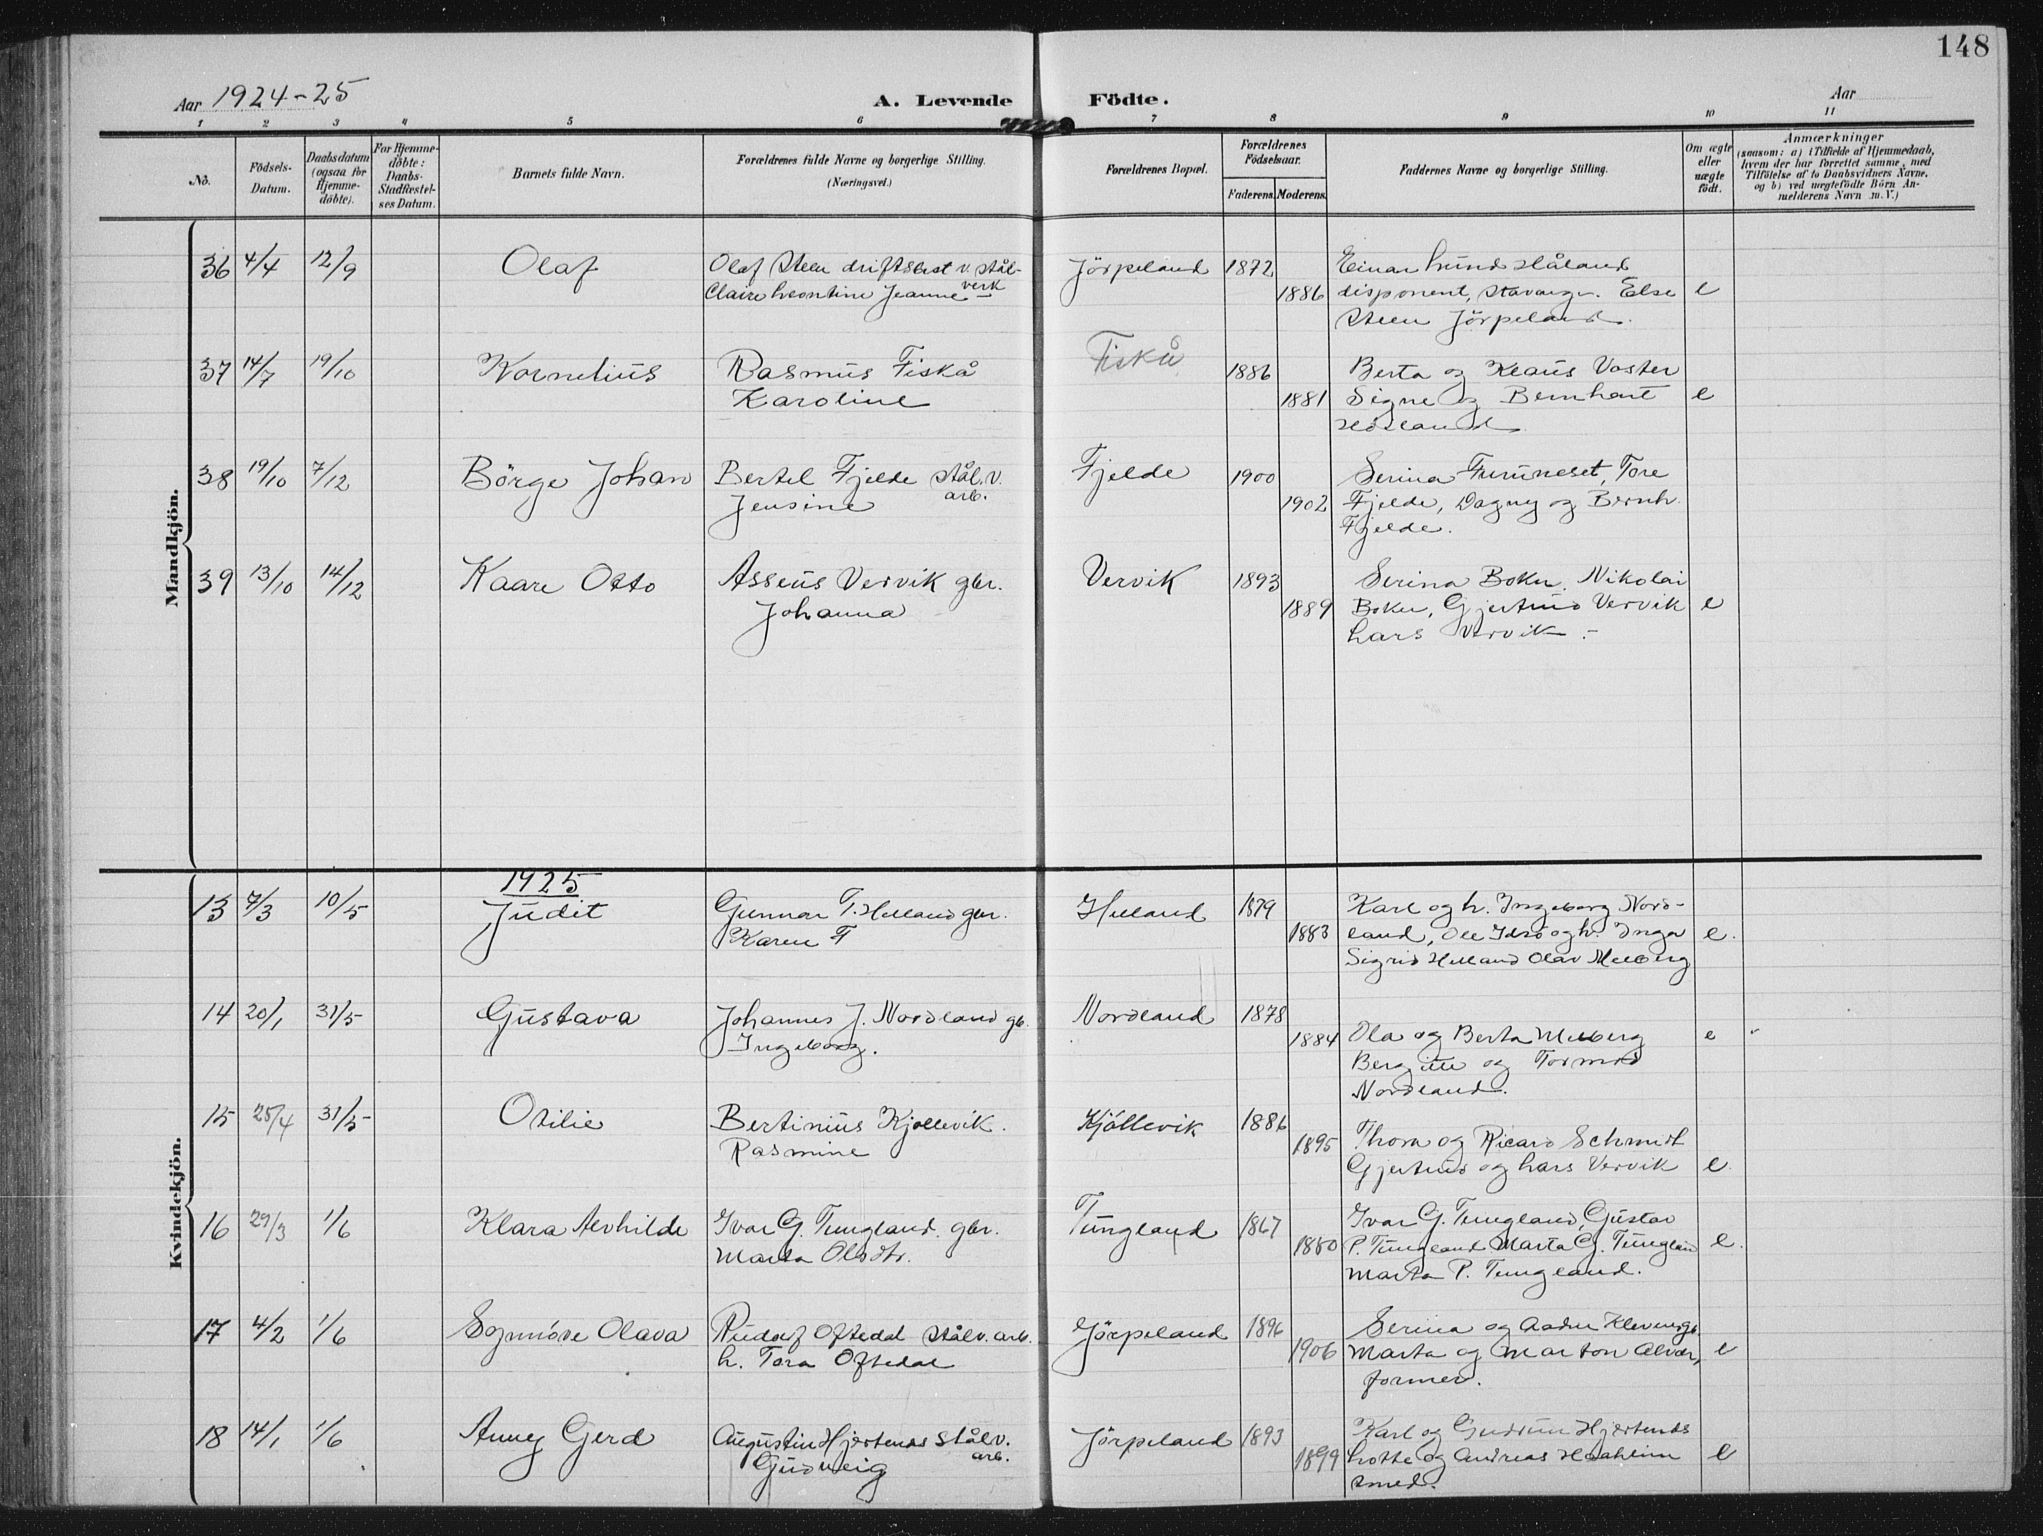 148
Aar 1924-25
A. Levende Födte.
Aar
1 2 3 4 5 6 7 8 9 10 11
No.
Födsels-Datum.
Daabsdatum (ogsaa for Hjemme-döbte).
For Hjemme-döbte: Daabs-Stadfæstel-ses Datum.
Barnets fulde Navn.
Forældrenes fulde Navne og borgerlige Stilling.
(Næringsvei.)
Forældrenes Bopæl.
Forældrenes Födselsaar.
Faderens. Moderens.
Faddernes Navne og borgerlige Stilling.
Om ægte eller uægte födt.
Anmærkninger
(saasom: a) i Tilfælde af Hjemmedaab, hvem der har forrettet samme, med Tilföielse af to Daabsvidners Navne, og b) ved uægtefödte Börn An-melderens Navn m. V.)
Mandkjön.
36 4/4 12/9 Olaf Olaf Steen driftsbest v. stål- Jörpeland 1872 Einar Lund Håland
Claire Leontine Jeanne verk 1886 disponent, Stavanger. Else e
Steen Jörpeland.
37 14/7 19/10 Kornelius Rasmus Fiskå Fiskå 1886 Berta og Klaus Voster
Karoline 1881 Signe og Bernhart e
38 19/10 7/12 Börge Johan Bertel Fjelde stålv. arb. Fjelde 1900 Serina Furuneset, Tore
Jensine 1902 Fjelde, Dagny og Bernh.
Fjelde.
39 13/10 14/12 Kaare Otto Asseus Vervik gbr. Vervik 1893 Serina Boken, Nikolai
Johanna 1889 Boken, Gjertrud Vervik e
Lars Vervik.-
Kvindekjön.
1925
13 7/3 10/5 Judit Gunnar T. Helland gbr. Helland 1879 Karl og h. Ingeborg Nord-
Karen F 1883 land, Ole Idsö og h. Inga e.
Sigrid Helland Olav Melberg
14 20/1 31/5 Gustava Johannes J. Nordland gb. Nordland 1878
Ingeborg. 1884 Ola og Berta Melberg e
Bergitte og Tormod
Nordland.
15 25/4 31/5- Otilie Bertinius Kjøllevik. Kjöllevik 1886
Rasmine 1895 Thora og Ricard Schmidt
Gjertrud og Lars Vervik e.
16 29/3 1/6 Klara Alvhilde Ivar G. Tungland. gbr. Tungland 1867 Ivar G. Tungland, Gustav
Marta Olsdtr. 1880 P. Tungland Marta G. Tunglan e.
Marta P. Tungland.
17 4/2 1/6 Synnöve Olava Rudolf Oftedal stålv. arb. Jörpeland 1896 Serina og Aadne
h. Tora Oftedal 1906 Marta og Marton e
former.
18 14/1 1/6 Anny Gerd Augustin Hjertenæs stålv. arb. Jörpeland 1893 Karl og Gudrun Hjertenæs
Gudveig 1899 Lotte og Andreas Haaheim e
smed.